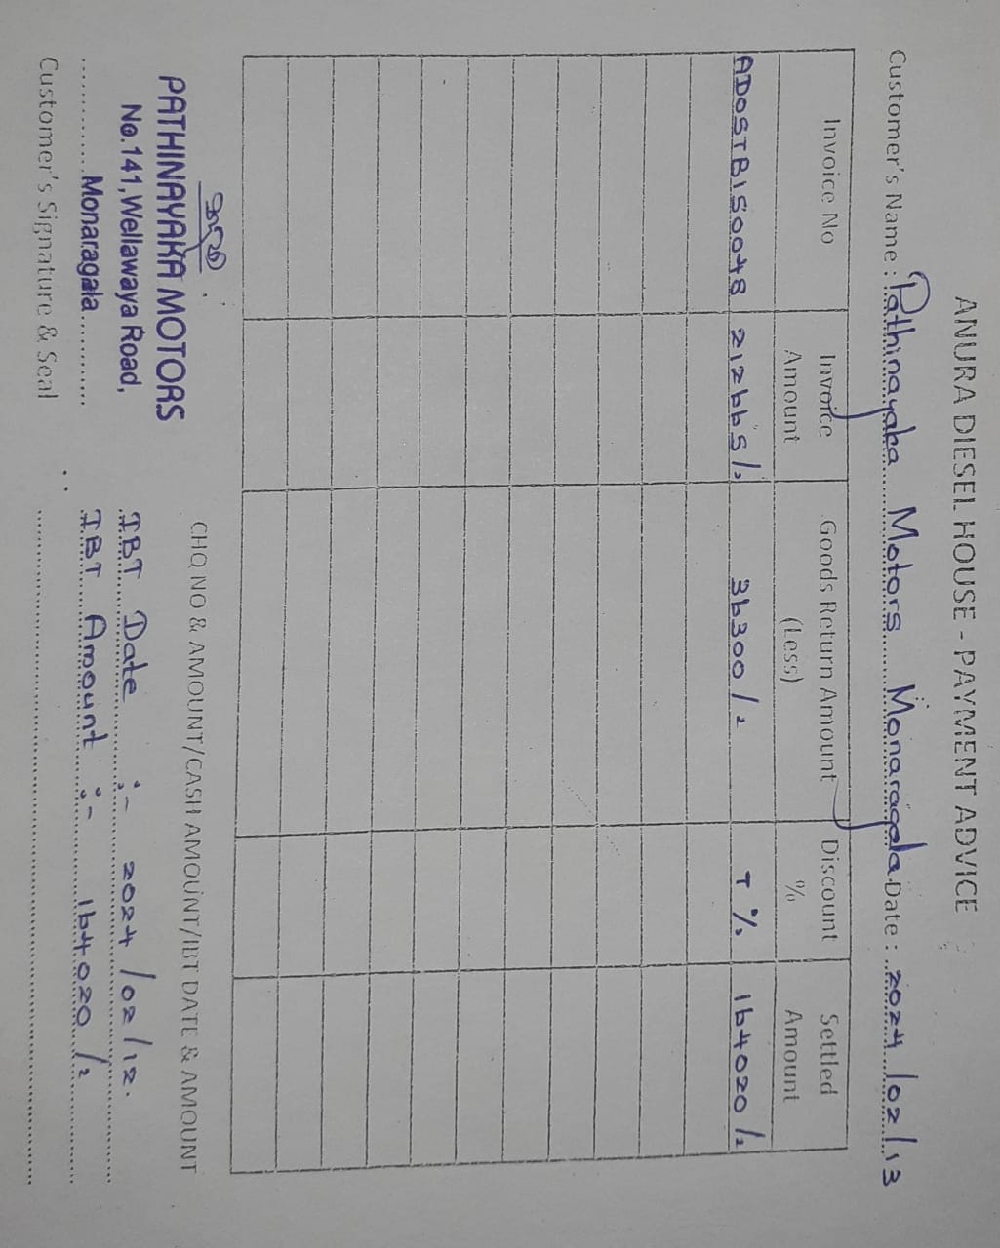 ANURA DIESEL HOUSE - PAYMENT ADVICE
Customer's Name : Pathinayaka Motors Monaragala Date : 2024/02/13
Invoice No Invoice Amount Goods Return Amount (Less) Discount % Settled Amount
ADOSTB150048 212665/= 36300/= 7% 164020/=
CHQ NO & AMOUNT/CASH AMOUNT/IBT DATE & AMOUNT
PATHINAYAKA MOTORS
No.141, Wellawaya Road,
Monaragala
Customer's Signature & Seal
IBT Date :- 2024/02/12.
IBT Amount :- 164020/=